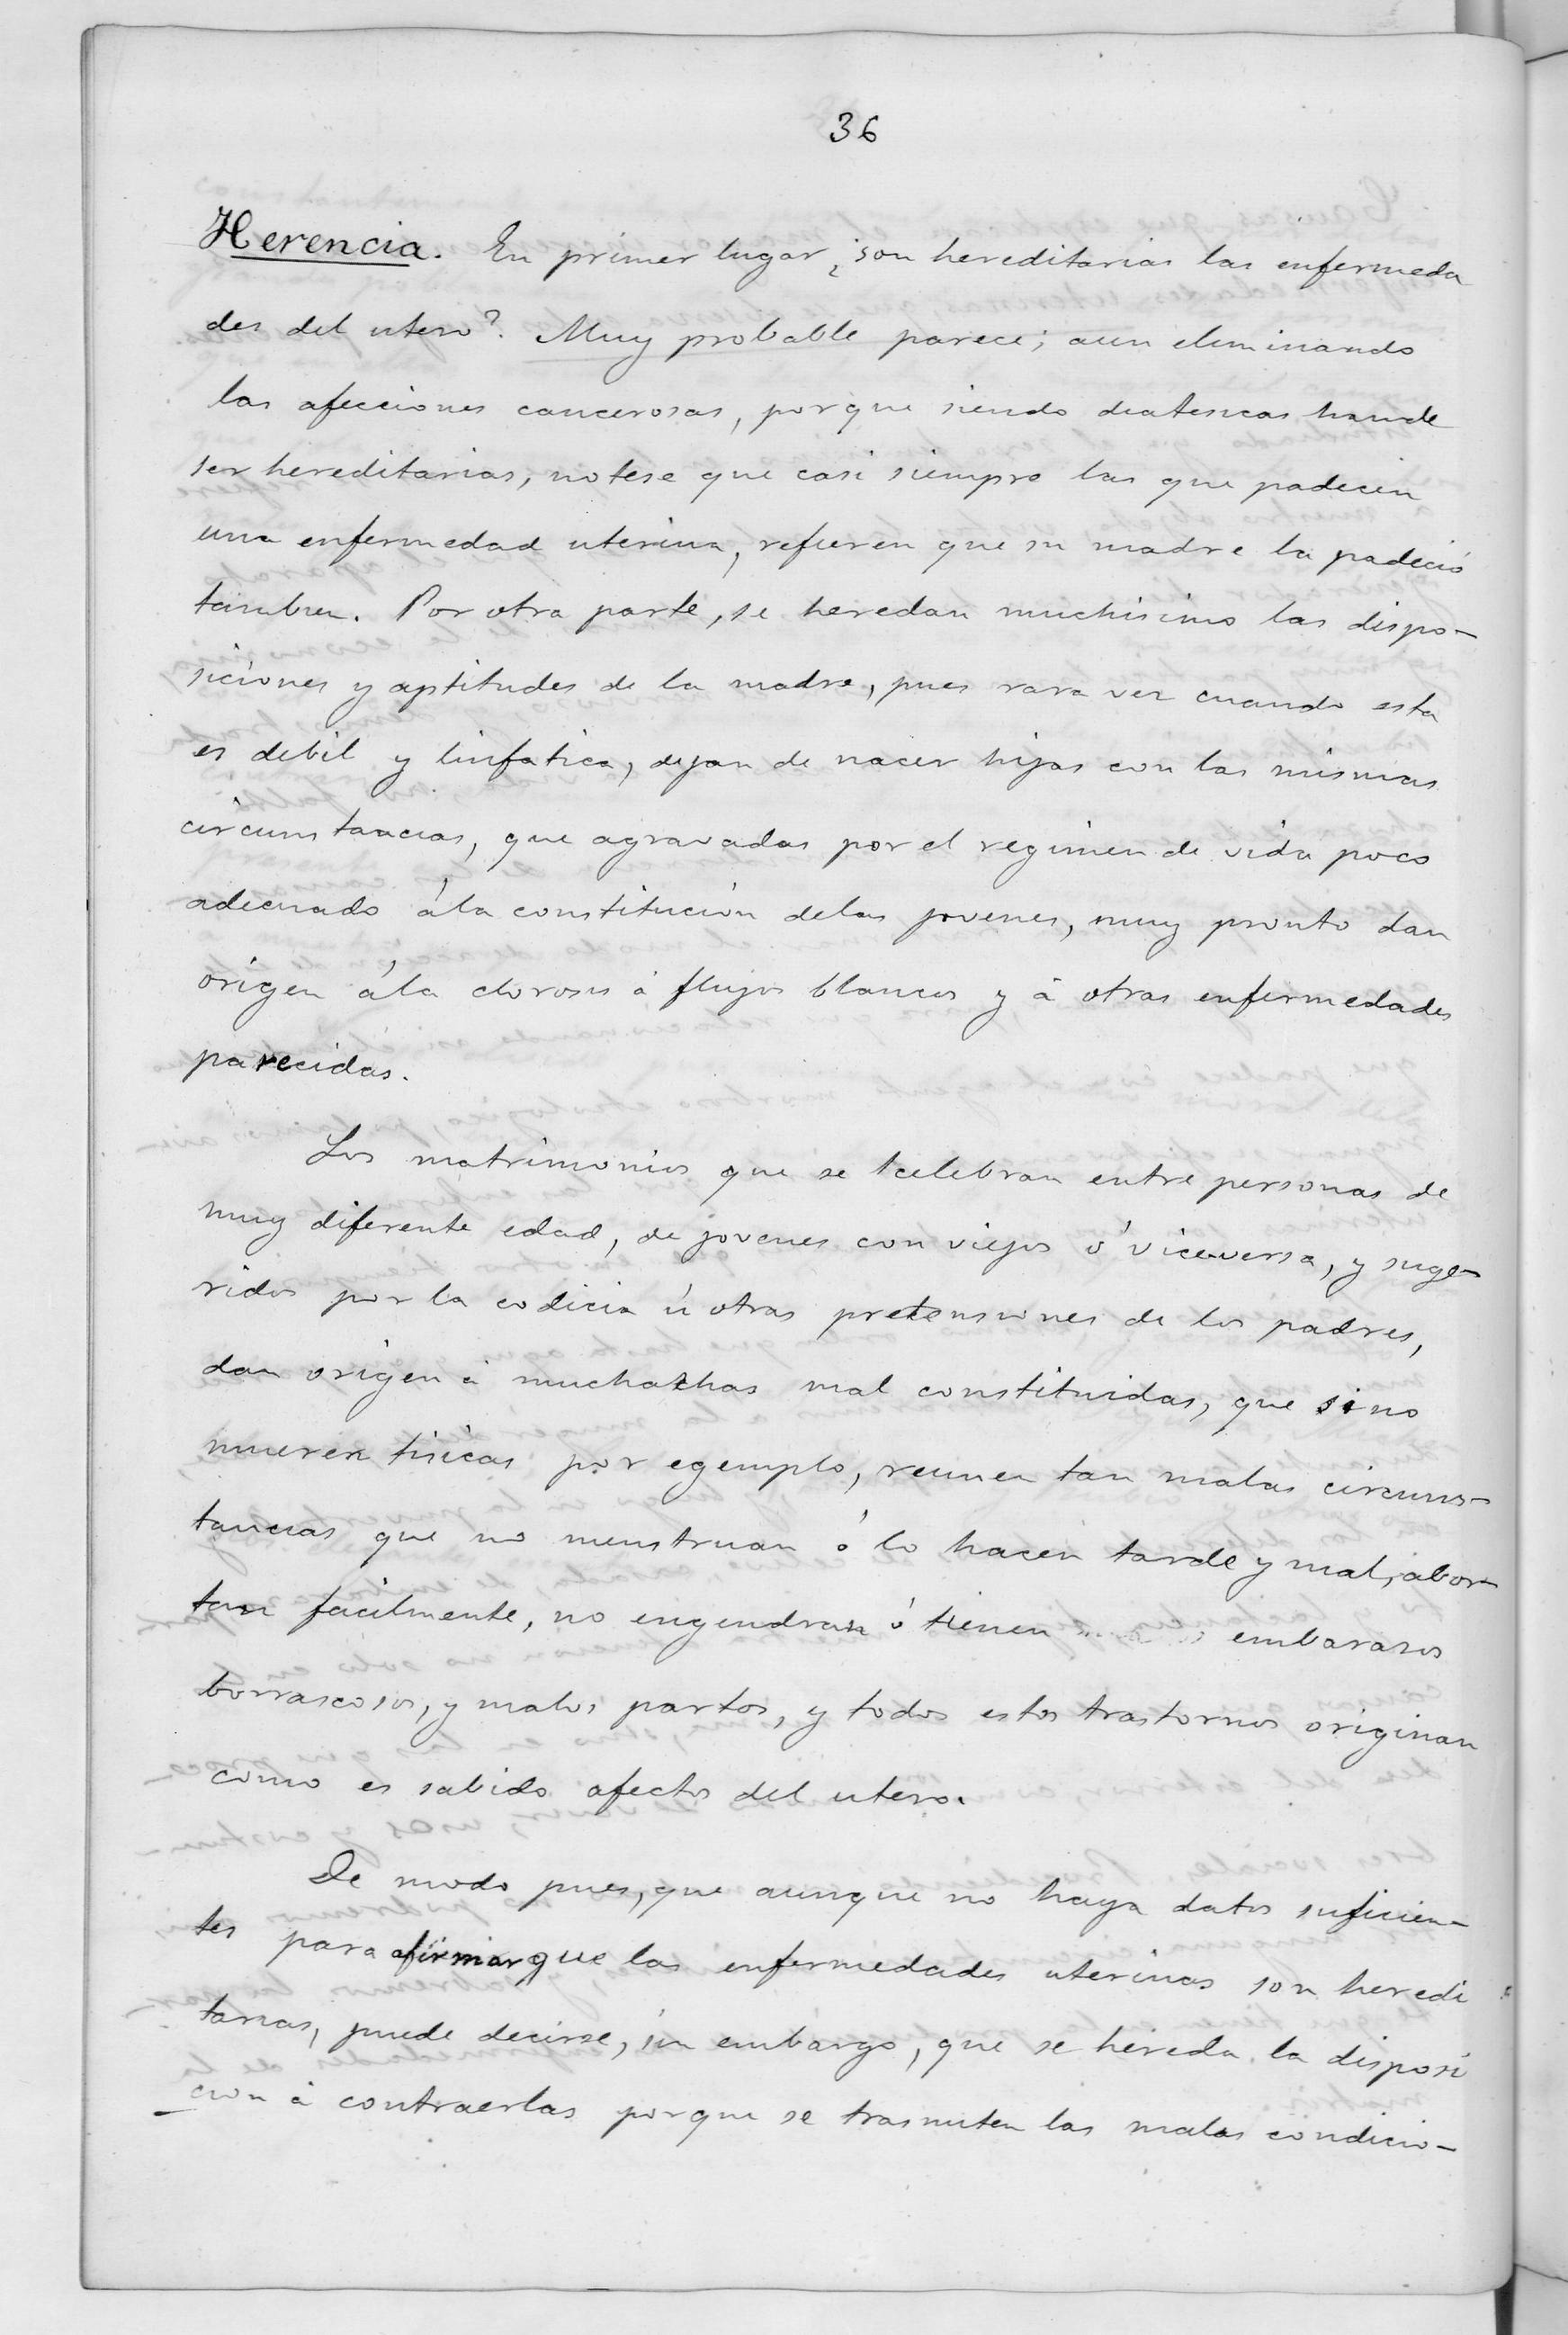 36
Herencia. En primer lugar ¿son hereditarias las enfermeda
des del utero? Muy probable parece; aun eliminando
las afecciones cancerosas, porque siendo diatesicas han de
ser hereditarias, notese que casi siempre las que padecen
una enfermedad uterina, refieren que su madre la padeció
tambien. Por otra parte, se heredan muchisimo las dispo-
siciones y aptitudes de la madre, pues rara vez cuando esta
es debil y linfatica, dejan de nacer hijas con las mismas
circunstancias, que agravadas por el regimen de vida poco
adecuado á la constitución de las jovenes, muy pronto dan
origen á la clorosis á flujos blancos y á otras enfermedades
parecidas.
Los matrimonios que se celebran entre personas de
muy diferente edad, de jovenes con viejos ó viceversa, y suge-
ridos por la codicia ú otras pretensiones de los padres,
dan origen á muchachas mal constituidas, que si no
mueren tisicas por egemplo, reunen tan malas circuns-
tancias que no menstruan ó lo hacen tarde y mal, abor-
tan facilmente, no engendran ó tienen embarazos
borrascosos, y malos partos, y todos estos trastornos originan
como es sabido afectos del utero.
De modo pues, que aunque no haya datos suficien-
tes para afirmar que las enfermedades uterinas son heredi
tarias, puede decirse, sin embargo, que se hereda la disposi
cion á contraerlas porque se trasmiten las malas condicio-